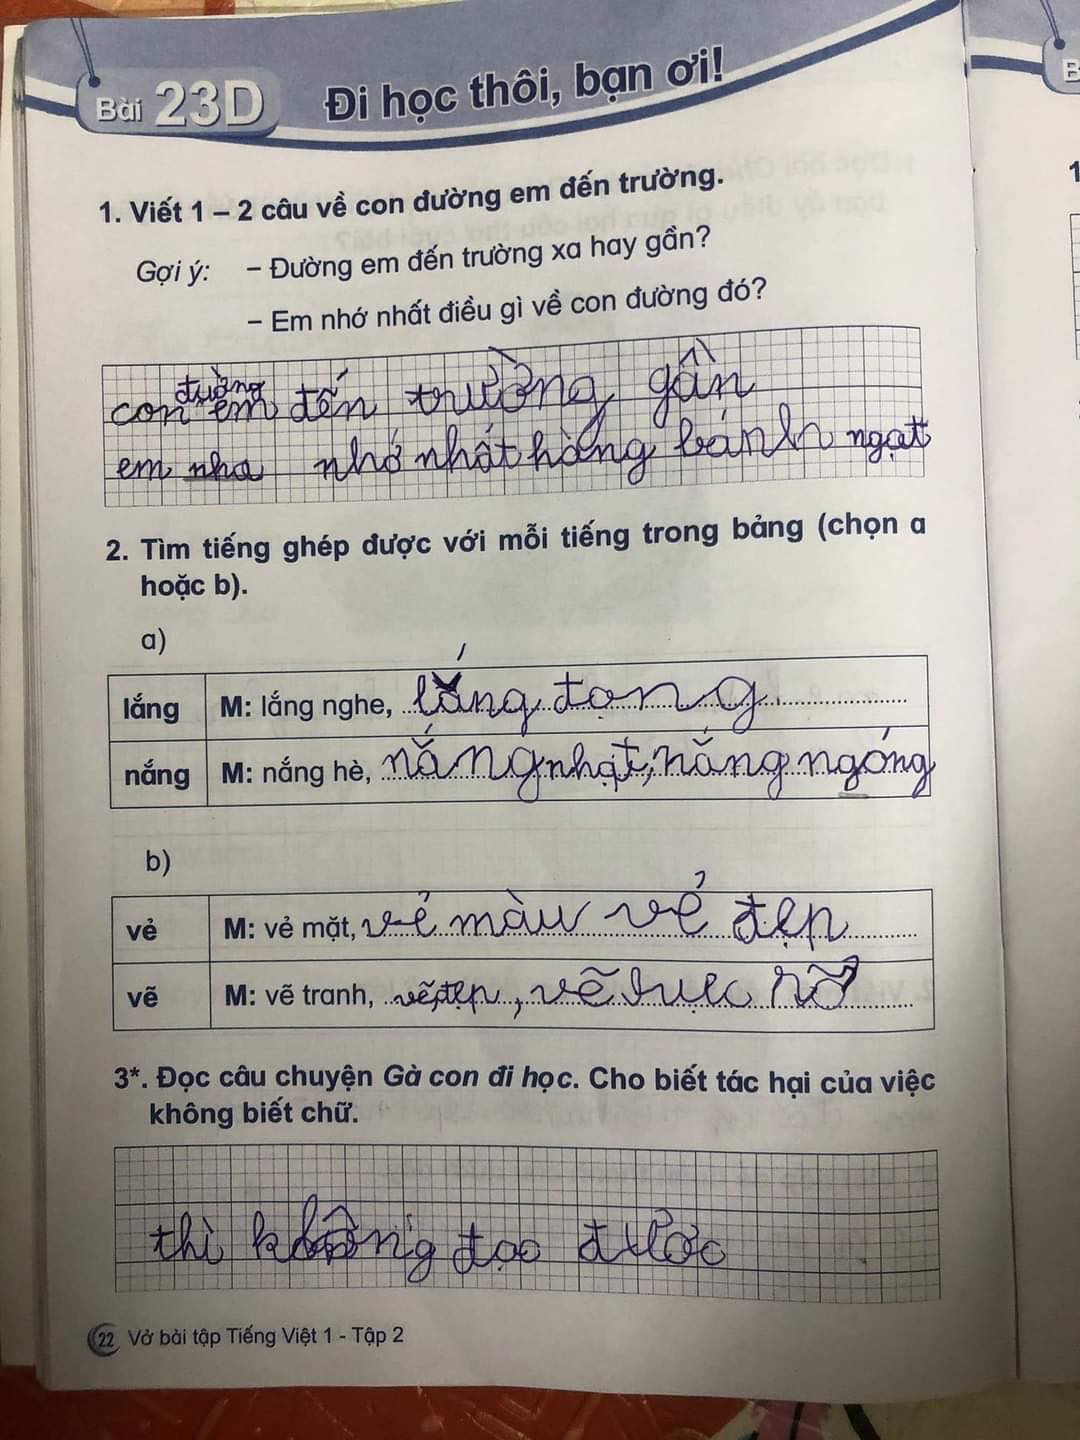 Bài 23D Đi học thôi, bạn ơi!
1. Viết 1 – 2 câu về con đường em đến trường.
Gợi ý: – Đường em đến trường xa hay gần?
– Em nhớ nhất điều gì về con đường đó?
con đường em đến trường gần
em nha nhớ nhất hàng bánh ngọt
2. Tìm tiếng ghép được với mỗi tiếng trong bảng (chọn a
hoặc b).
a)
lắng M: lắng nghe, lắng đọng
nắng M: nắng hè, nắng nhạt, nắng ngóng
b)
vẻ M: vẻ mặt, vẻ màu vẻ đẹp
vẽ M: vẽ tranh, vẽ đẹp, vẽ rực rỡ
3*. Đọc câu chuyện Gà con đi học. Cho biết tác hại của việc
không biết chữ.
thì không đọc được
22 Vở bài tập Tiếng Việt 1 - Tập 2
B
1